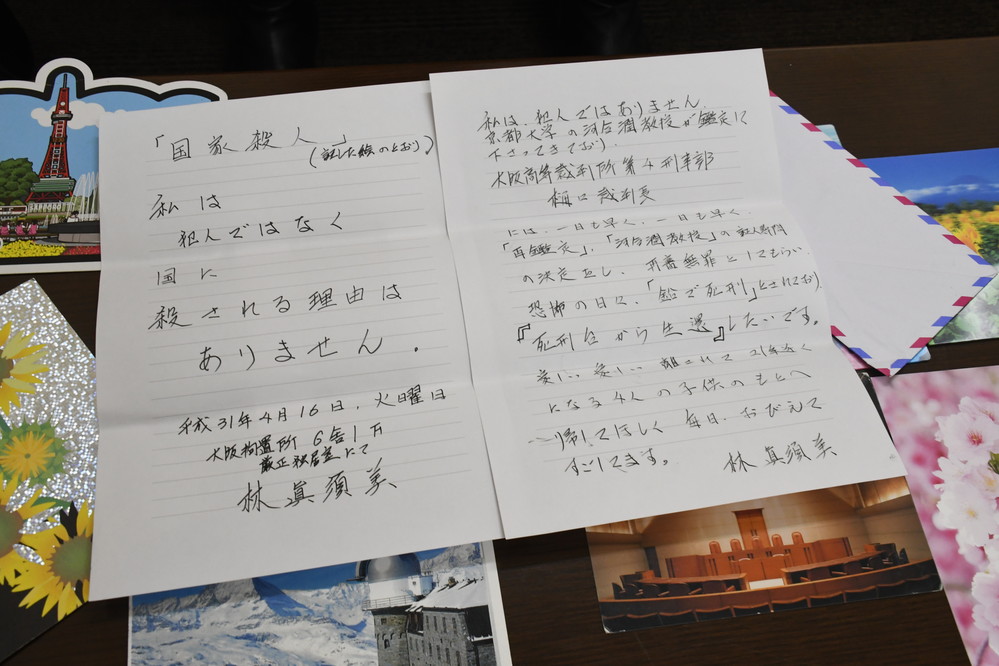 「国家殺人」
(記した絵のとおり)
私は
犯人ではなく
国に
殺される理由は
ありません.
平成31年4月16日,火曜日
大阪拘置所 6舎1
厳正独居室にて
林眞須美
私は,犯人ではありません.
京都大学の河合潤教授が鑑定に
下さってきており.
大阪高等裁判所第4刑事部
樋口裁判長
には,一日も早く,一日も早く,
「再鑑定」,「河合潤教授」の証人尋問
の決定をし,再審無罪としてもらい.
恐怖の日々,「鉛で死刑」とされており.
『死刑台から生還』したいです。
愛しい愛しい離されて21年近く
になる4人の子供のもとへ
帰してほしく毎日,おびえて
すごしてます。
林眞須美